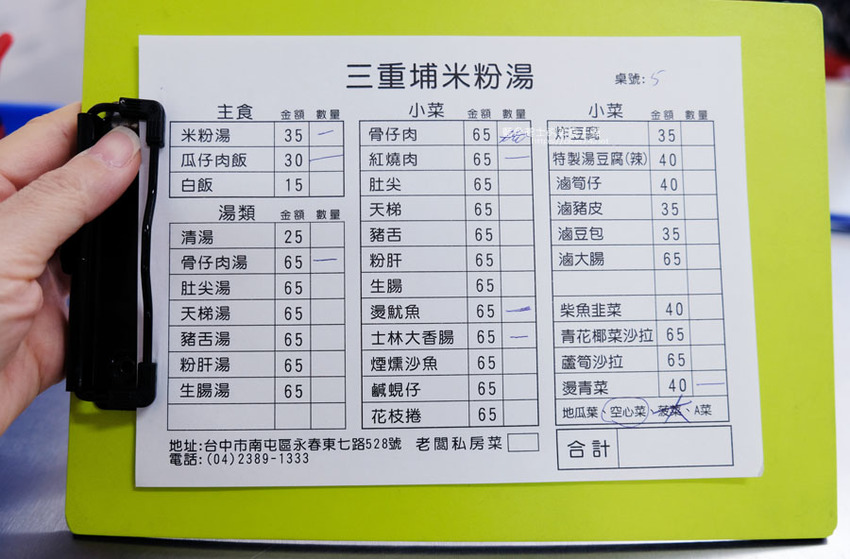 三重埔米粉湯
桌號: 5
主食 金額 數量
米粉湯 35 一
瓜仔肉飯 30 一
白飯 15
湯類 金額 數量
清湯 25
骨仔肉湯 65 一
肚尖湯 65
天梯湯 65
豬舌湯 65
粉肝湯 65
生腸湯 65
小菜 金額 數量
骨仔肉 65
紅燒肉 65 一
肚尖 65
天梯 65
豬舌 65
粉肝 65
生腸 65
燙魷魚 65 一
士林大香腸 65 一
煙燻沙魚 65
鹹蜆仔 65
花枝捲 65
小菜 金額 數量
炸豆腐 35
特製湯豆腐(辣) 40
滷筍仔 40
滷豬皮 35
滷豆包 35
滷大腸 65
柴魚韭菜 40
青花椰菜沙拉 65
蘆筍沙拉 65
燙青菜 40 一
地瓜葉、空心菜、菠菜、A菜
合計
地址:台中市南屯區永春東七路528號 老闆私房菜
電話:(04)2389-1333